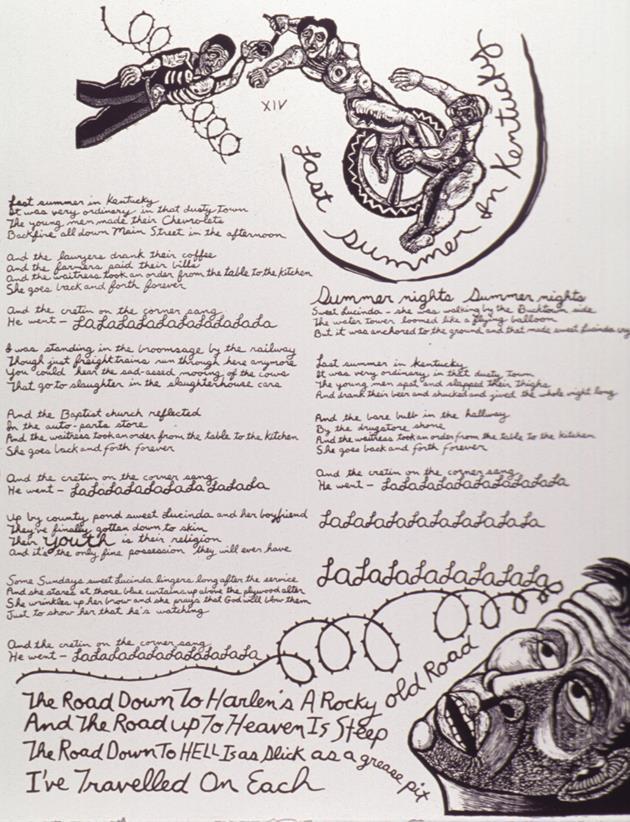 XIV
Last summer in Kentucky
Last summer in Kentucky
It was very ordinary in that dusty town
The young men made their Chevrolets
Backfire all down Main Street in the afternoon
And the lawyers drank their coffee
And the farmers paid their bills
And the waitress took an order from the table to the kitchen
She goes back and forth forever
And the cretin on the corner sang
He went - LaLaLaLaLaLaLaLaLaLa
I was standing in the broomsage by the railway
Though just freight trains run through here anymore
You could hear the sad-assed mooing of the cows
That go to slaughter in the slaughterhouse cars
And the Baptist church reflected
In the auto-parts store
And the waitress took an order from the table to the kitchen
She goes back and forth forever
And the cretin on the corner sang
He went - LaLaLaLaLaLaLaLaLaLa
Up by county pond sweet Lucinda and her boyfriend
They've finally gotten down to skin
Their youth is their religion
And it's the only fine possession they will ever have
Some Sundays sweet Lucinda lingers long after the service
And she stares at those blue curtains up above the plywood alter
She wrinkles up her brow and she prays that God will blow them
Just to show her that he's watching
And the cretin on the corner sang
He went - LaLaLaLaLaLaLaLaLaLa
Summer nights Summer nights
Sweet Lucinda - she was walking by the Bucktown side
The water tower loomed like a flying balloon
But it was anchored to the ground and that made sweet Lucinda cry
Last summer in Kentucky
It was very ordinary in that dusty town
The young men spat and slapped their thighs
And drank their beer and shucked and jived the whole night long
And the bare bulb in the hallway
By the drugstore shone
And the waitress took an order from the table to the kitchen
She goes back and forth forever
And the cretin on the corner sang
He went - LaLaLaLaLaLaLaLaLaLa
LaLaLaLaLaLaLaLaLaLa
LaLaLaLaLaLaLaLaLa
The Road Down To Harlen's A Rocky old Road
And The Road up To Heaven Is Steep
The Road Down To HELL Is as Slick as a grease pit
I've Travelled On Each